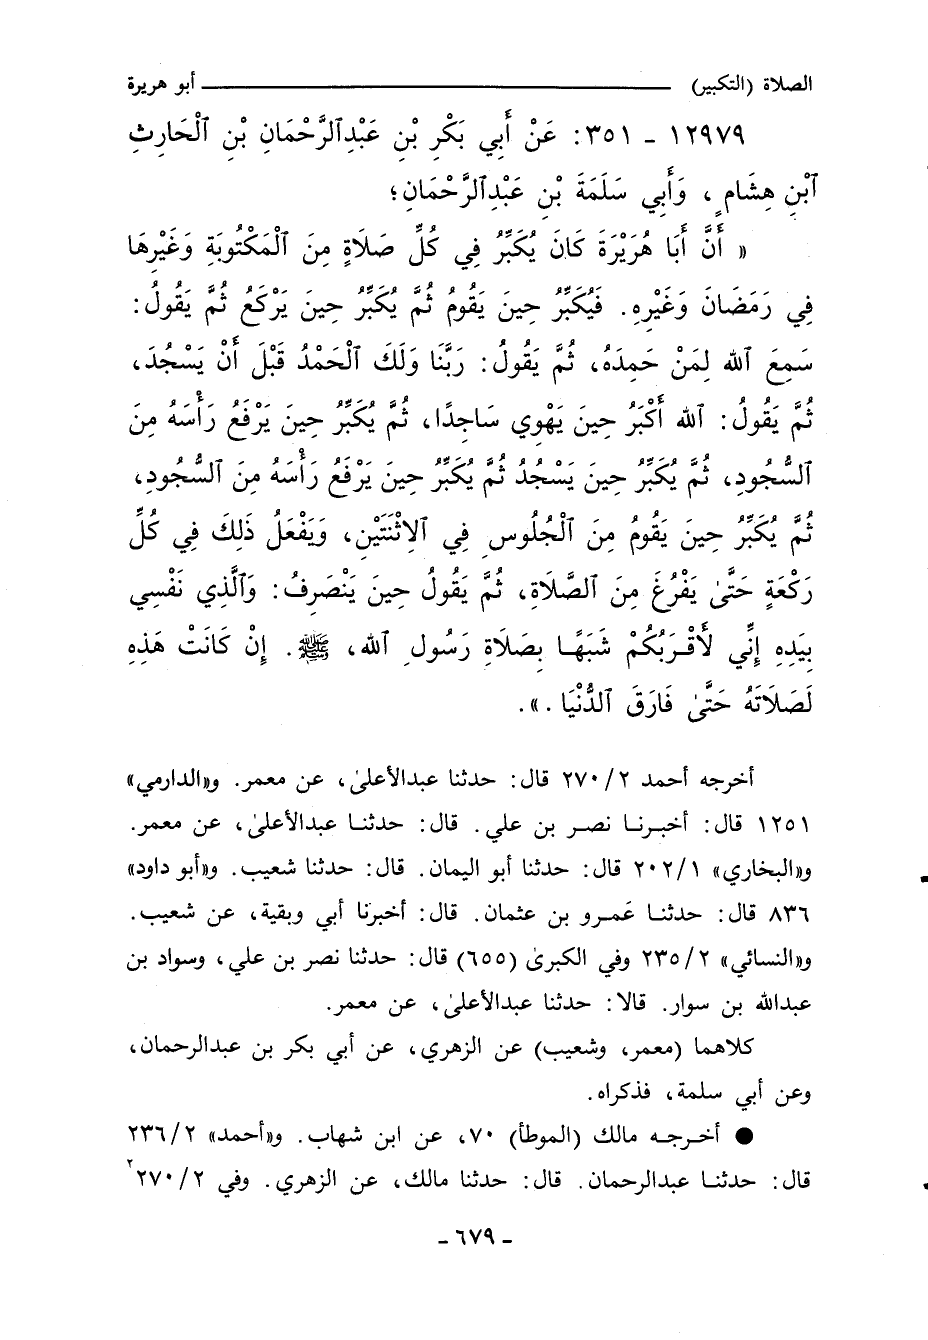 الصلاة (التكبير) ـــــــــــــــــــــــــــــــــــــ أبو هريرة
١٢٩٧٩ ـ ٣٥١: عَنْ أَبِي بَكْرِ بْنِ عَبْدِالرَّحْمَانِ بْنِ ٱلْحَارِثِ
ٱبْنِ هِشَامٍ، وَأَبِي سَلَمَةَ بْنِ عَبْدِٱلرَّحْمَانِ؛
« أَنَّ أَبَا هُرَيْرَةَ كَانَ يُكَبِّرُ فِي كُلِّ صَلَاةٍ مِنَ ٱلْمَكْتُوبَةِ وَغَيْرِهَا
فِي رَمَضَانَ وَغَيْرِهِ. فَيُكَبِّرُ حِينَ يَقُومُ ثُمَّ يُكَبِّرُ حِينَ يَرْكَعُ ثُمَّ يَقُولُ:
سَمِعَ ٱلله لِمَنْ حَمِدَهُ، ثُمَّ يَقُولُ: رَبَّنَا وَلَكَ ٱلْحَمْدُ قَبْلَ أَنْ يَسْجُدَ،
ثُمَّ يَقُولُ: ٱلله أَكْبَرُ حِينَ يَهْوِي سَاجِدًا، ثُمَّ يُكَبِّرُ حِينَ يَرْفَعُ رَأْسَهُ مِنَ
ٱلسُّجُودِ، ثُمَّ يُكَبِّرُ حِينَ يَسْجُدُ ثُمَّ يُكَبِّرُ حِينَ يَرْفَعُ رَأْسَهُ مِنَ ٱلسُّجُودِ،
ثُمَّ يُكَبِّرُ حِينَ يَقُومُ مِنَ ٱلْجُلُوسِ فِي ٱلِاثْنَتَيْنِ، وَيَفْعَلُ ذَلِكَ فِي كُلِّ
رَكْعَةٍ حَتَّىٰ يَفْرُغَ مِنَ ٱلصَّلَاةِ، ثُمَّ يَقُولُ حِينَ يَنْصَرِفُ: وَٱلَّذِي نَفْسِي
بِيَدِهِ إِنِّي لَأَقْرَبُكُمْ شَبَهًا بِصَلَاةِ رَسُولِ ٱلله، ﷺ. إِنْ كَانَتْ هَذِهِ
لَصَلَاتَهُ حَتَّىٰ فَارَقَ ٱلدُّنْيَا .».
أخرجه أحمد ٢٧٠/٢ قال: حدثنا عبدالأعلىٰ، عن معمر. و«الدارمي»
١٢٥١ قال: أخبرنا نصر بن علي. قال: حدثنا عبدالأعلىٰ، عن معمر.
و«البخاري» ٢٠٢/١ قال: حدثنا أبو اليمان. قال: حدثنا شعيب. و«أبو داود»
٨٣٦ قال: حدثنا عَمرو بن عثمان. قال: أخبرنا أبي وبقية، عن شعيب.
و«النسائي» ٢٣٥/٢ وفي الكبرىٰ (٦٥٥) قال: حدثنا نصر بن علي، وسواد بن
عبدالله بن سوار. قالا: حدثنا عبدالأعلىٰ، عن معمر.
كلاهما (معمر، وشعيب) عن الزهري، عن أبي بكر بن عبدالرحمان،
وعن أبي سلمة، فذكراه.
● أخرجه مالك (الموطأ) ٧٠، عن ابن شهاب. و«أحمد» ٢٣٦/٢
قال: حدثنا عبدالرحمان. قال: حدثنا مالك، عن الزهري. وفي ٢٧٠/٢
ـ ٦٧٩ ـ